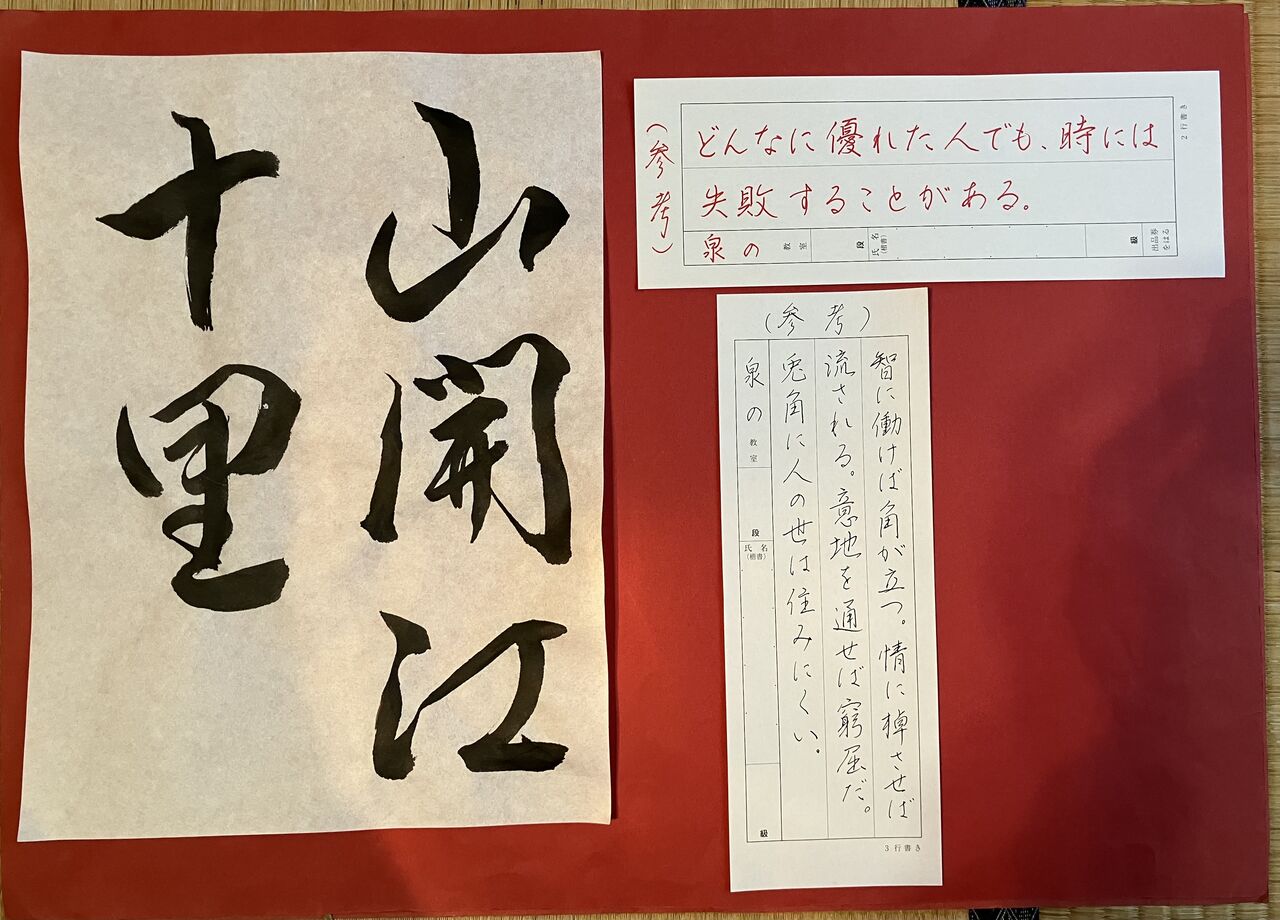 山開江
十里
(参考)
どんなに優れた人でも、時には
失敗することがある。
泉の 教室 段 氏名(楷書) 級 出品券をはる
2行書き
(参考)
智に働けば角が立つ。情に棹させば
流される。意地を通せば窮屈だ。
兎角に人の世は住みにくい。
泉の 教室 段 氏名(楷書) 級
3行書き